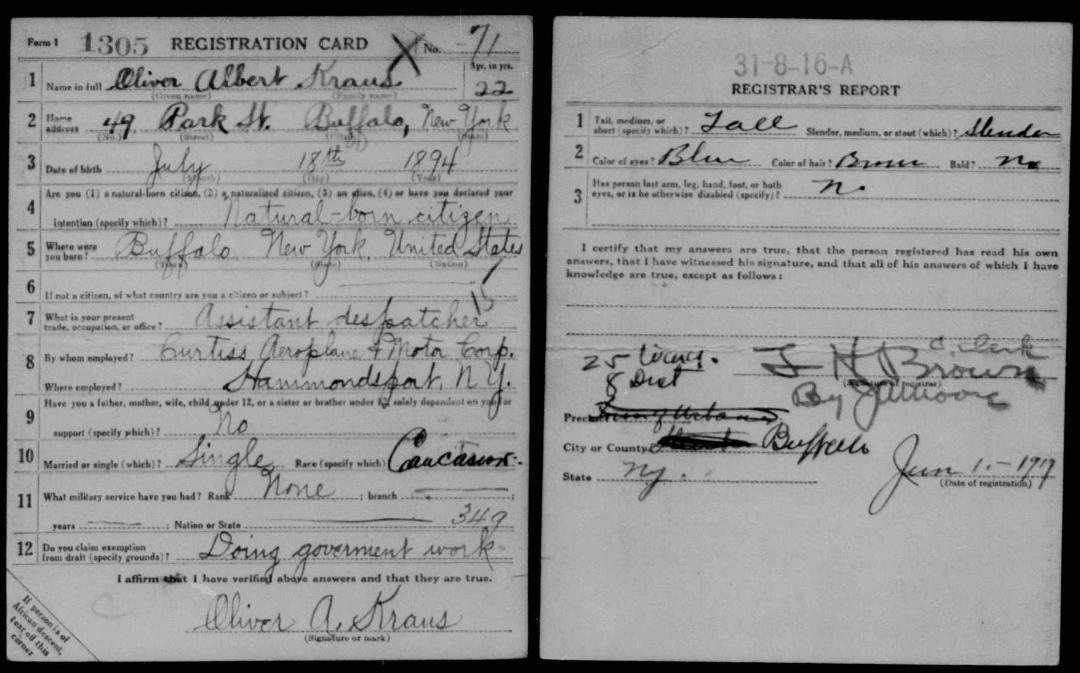 Form 1 1305 REGISTRATION CARD X No. 71
1 Name in full Oliver Albert Kraus Age, in yrs. 22
(Given name) (Family name)
2 Home address 49 Park St. Buffalo, New York
(No.) (Street) (City) (State)
3 Date of birth July 18th 1894
(Month) (Day) (Year)
4 Are you (1) a natural-born citizen, (2) a naturalized citizen, (3) an alien, (4) or have you declared your
intention (specify which)? Natural-born citizen
5 Where were you born? Buffalo New York, United States
(Town) (State) (Nation)
6 If not a citizen, of what country are you a citizen or subject?
15
7 What is your present trade, occupation, or office? Assistant despatcher
8 By whom employed? Curtiss Aeroplane & Motor Corp.
Where employed? Hammondsport, N.Y.
9 Have you a father, mother, wife, child under 12, or a sister or brother under 12, solely dependent on you for
support (specify which)? No
10 Married or single (which)? Single Race (specify which)? Caucasian
11 What military service have you had? Rank None ; branch ;
years ; Nation or State 349
12 Do you claim exemption from draft (specify grounds)? Doing goverment work
I affirm that I have verified above answers and that they are true.
Oliver A. Kraus
(Signature or mark)
If person is of
African descent,
tear off this
corner
31-8-16-A
REGISTRAR'S REPORT
1 Tall, medium, or short (specify which)? Tall Slender, medium, or stout (which)? Slender
2 Color of eyes? Blue Color of hair? Brown Bald? No
3 Has person lost arm, leg, hand, foot, or both eyes, or is he otherwise disabled (specify)? No
I certify that my answers are true, that the person registered has read his own
answers, that I have witnessed his signature, and that all of his answers of which I have
knowledge are true, except as follows:
25
8 Dist
J H Brown C. Clerk
(Signature of registrar)
By
Precinct
City or County Buffalo
State NY.
June 1 - 1917
(Date of registration)